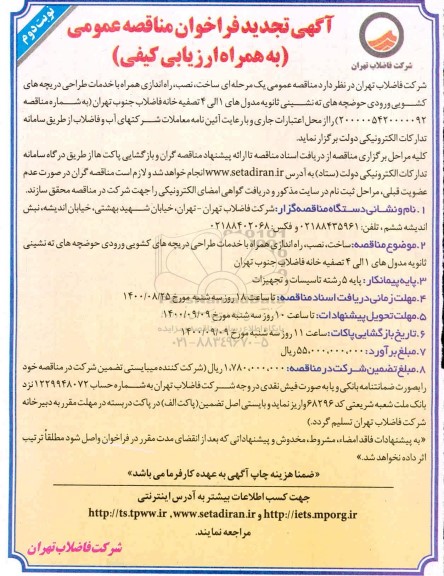 نوبت دوم
آگهی تجدید فراخوان مناقصه عمومی
(به همراه ارزیابی کیفی)
شرکت فاضلاب تهران
شرکت فاضلاب تهران در نظر دارد مناقصه عمومی یک مرحله ای ساخت، نصب، راه اندازی همراه با خدمات طراحی دریچه های
کشویی ورودی حوضچه های ته نشینی ثانویه مدول های ۱ الی ۴ تصفیه خانه فاضلاب جنوب تهران (به شماره مناقصه
۲۰۰۰۰۰۵۴۲۰۰۰۰۰۹۲) را از محل اعتبارات جاری و با رعایت آئین نامه معاملات شرکتهای آب و فاضلاب از طریق سامانه
تدارکات الکترونیکی دولت برگزار نماید.
کلیه مراحل برگزاری مناقصه از دریافت اسناد مناقصه تا ارائه پیشنهاد مناقصه گران و بازگشایی پاکت ها از طریق درگاه سامانه
تدارکات الکترونیکی دولت (ستاد) به آدرس www.setadiran.ir انجام خواهد شد و لازم است مناقصه گران در صورت عدم
عضویت قبلی، مراحل ثبت نام در سایت مذکور و دریافت گواهی امضای الکترونیکی را جهت شرکت در مناقصه محقق سازند.
۱. نام و نشانی دستگاه مناقصه گزار: شرکت فاضلاب تهران - تهران، خیابان شهید بهشتی، خیابان اندیشه، نبش
اندیشه ششم، تلفن: ۰۲۱۸۸۴۳۵۹۶۱ و فکس: ۰۲۱۸۸۴۰۲۰۶۸
۲. موضوع مناقصه: ساخت، نصب، راه اندازی همراه با خدمات طراحی دریچه های کشویی ورودی حوضچه های ته نشینی
ثانویه مدول های ۱ الی ۴ تصفیه خانه فاضلاب جنوب تهران
۳. پایه پیمانکار: پایه ۵ رشته تاسیسات و تجهیزات
۴. مهلت زمانی دریافت اسناد مناقصه: تا ساعت ۱۸ روز سه شنبه مورخ ۱۴۰۰/۰۸/۲۵
۵. مهلت تحویل پیشنهادات: تا ساعت ۱۰ روز سه شنبه مورخ ۱۴۰۰/۰۹/۰۹
۶. تاریخ بازگشایی پاکات: ساعت ۱۱ روز سه شنبه مورخ ۱۴۰۰/۰۹/۰۹
۰۲۱-۸۸۳۴۹۶۷۰-۵
۷. مبلغ برآورد: ۵۵,۰۰۰,۰۰۰,۰۰۰ ریال
۸. مبلغ تضمین شرکت در مناقصه: ۱,۷۸۰,۰۰۰,۰۰۰ ریال (شرکت کننده میبایستی تضمین شرکت در مناقصه خود
را بصورت ضمانتنامه بانکی و یا به صورت فیش نقدی در وجه شرکت فاضلاب تهران به شماره حساب ۱۲۲۹۹۴۸۰۷۲ نزد
بانک ملت شعبه شریعتی کد ۶۸۲۹۶ واریز نماید و بایستی اصل تضمین (پاکت الف) در پاکت دربسته در مهلت مقرر به دبیرخانه
شرکت فاضلاب تهران تسلیم گردد.)
«به پیشنهادات فاقد امضاء، مشروط، مخدوش و پیشنهاداتی که بعد از انقضای مدت مقرر در فراخوان واصل شود مطلقاً ترتیب
اثر داده نخواهد شد.»
«ضمنا هزینه چاپ آگهی به عهده کارفرما می باشد»
جهت کسب اطلاعات بیشتر به آدرس اینترنتی
http://iets.mporg.ir و www.setadiran.ir , http://ts.tpww.ir
مراجعه نمایند.
شرکت فاضلاب تهران